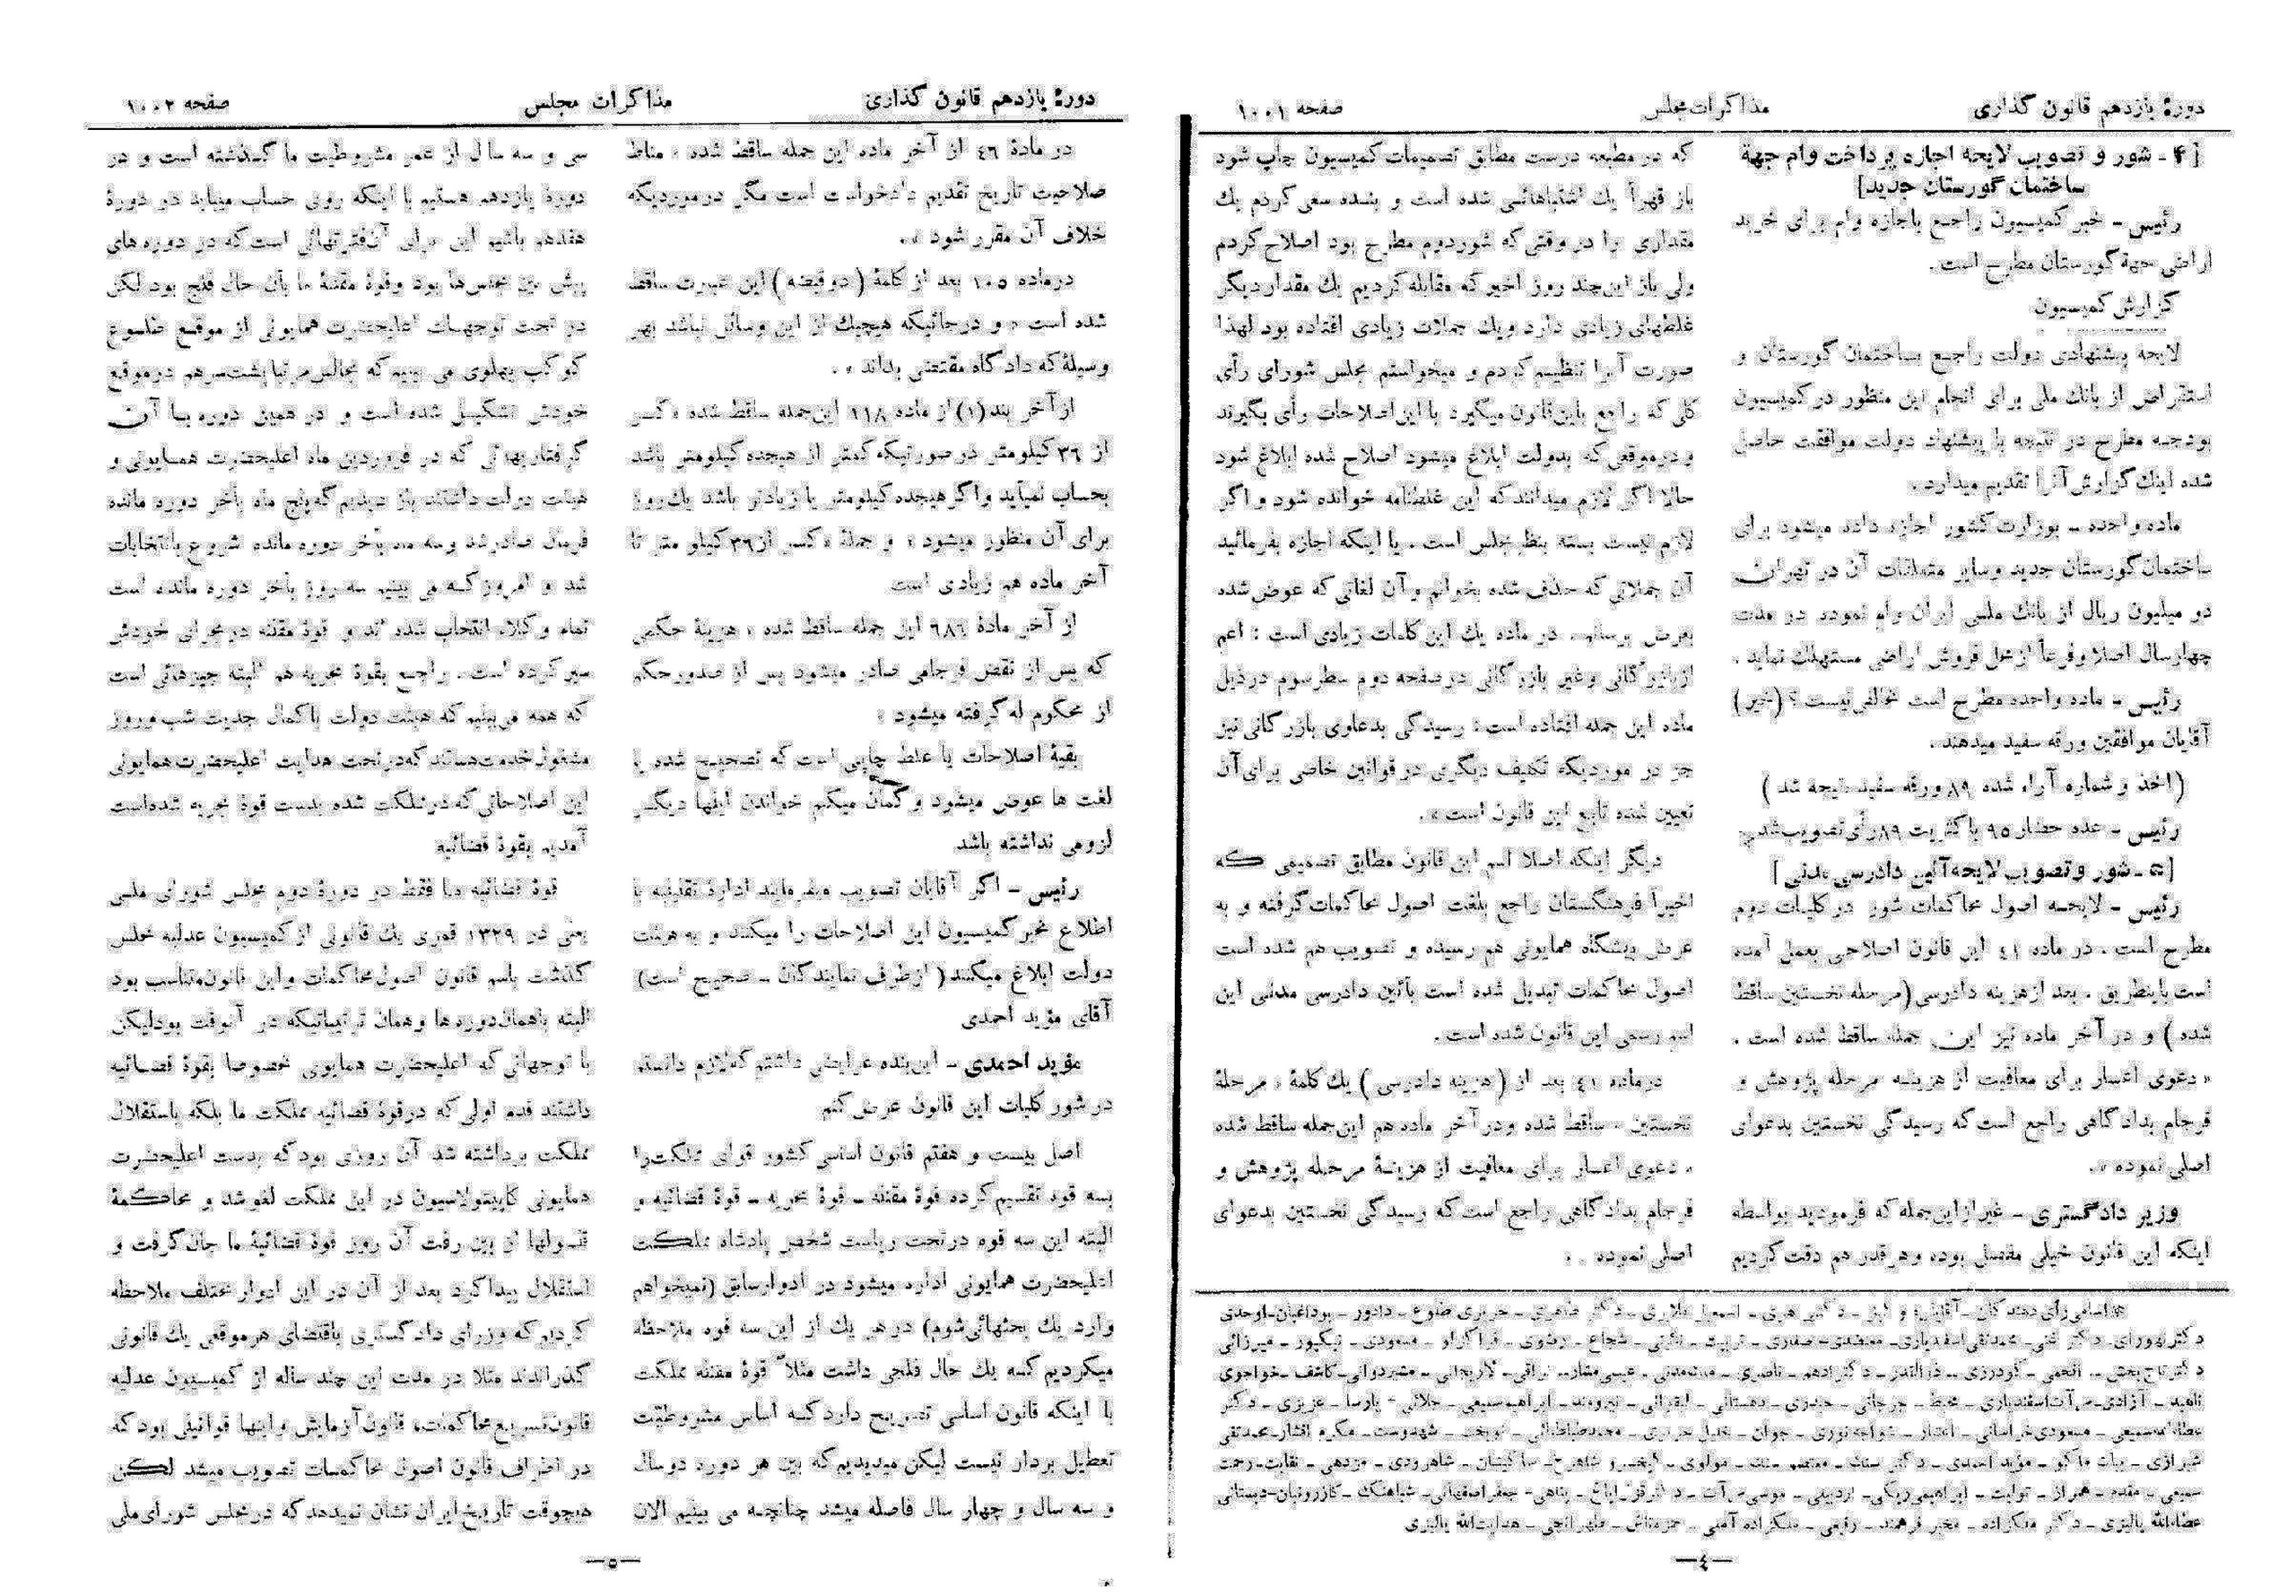 دورهٔ یازدهم قانون گذاری
مذاکرات مجلس
صفحه ۱۰۰۱
[۴ ـ شور و تصویب لایحه اجازه پرداخت وام جهة
ساختمان گورستان جدید]
رئیس ـ خبر کمیسیون راجع باجازه وام برای خرید
اراضی جهة گورستان مطرح است .
گزارش کمیسیون
لایحه پیشنهادی دولت راجع بساختمان گورستان و
استقراض از بانك ملی برای انجام این منظور در کمیسیون
بودجه مطرح در نتیجه با پیشنهاد دولت موافقت حاصل
شده اینك گزارش آنرا تقدیم میدارد .
ماده واحده ـ بوزارت کشور اجازه داده میشود برای
ساختمان گورستان جدید وسایر متعلقات آن در تهران
دو میلیون ریال از بانك ملی ایران وام نموده در مدت
چهارسال اصلا وفرعاً از محل فروش اراضی مستهلك نماید .
رئیس ـ ماده واحده مطرح است مخالفی نیست ؟ (خیر)
آقایان موافقین ورقه سفید میدهند .
(اخذ و شماره آراء شده ۸۹ ورقه سفید نتیجه شد )
رئیس ـ عده حضار ۹۵ با کثریت ۸۹ رأی تصویب شد
[۵ ـ شور و تصویب لایحه آئین دادرسی مدنی ]
رئیس ـ لایحه اصول محاکمات شور در کلیات دوم
مطرح است . در ماده ٤۱ این قانون اصلاحی بعمل آمده
است باینطریق . بعد از هزینه دادرسی (مرحله نخستین ساقط
شده ) و در آخر ماده نیز این جمله ساقط شده است .
« دعوی اعسار برای معافیت از هزینه مرحله پژوهش و
فرجام بدادگاهی راجع است که رسیدگی نخستین بدعوای
اصلی نموده ».
وزیر دادگستری ـ غیر از این جمله که فرمودید بواسطه
اینکه این قانون خیلی مفصل بوده و هر قدر هم دقت کردیم
که در مطبعه درست مطابق تصمیمات کمیسیون چاپ شود
باز قهراً یك اشتباهاتی شده است و بنده سعی کردم یك
مقداری را در وقتی که شور دوم مطرح بود اصلاح کردم
ولی باز این چند روز اخیر که مقابله کردیم یك مقدار دیگر
غلطهای زیادی دارد و یك جملات زیادی افتاده بود لهذا
صورت آنرا تنظیم کردم و میخواستم مجلس شورای رأی
کلی که راجع باین قانون میگیرد با این اصلاحات رأی بگیرند
و در موقعی که بدولت ابلاغ میشود اصلاح شده ابلاغ شود
حالا اگر لازم میدانند که این غلطنامه خوانده شود و اگر
لازم نیست بسته بنظر مجلس است . یا اینکه اجازه بفرمائید
آن جملاتی که حذف شده بخوانم و آن لغاتی که عوض شده
بعرض برسانم. در ماده یك این کلمات زیادی است : اعم
از بازرگانی وغیر بازرگانی در صفحه دوم سطر سوم در ذیل
ماده این جمله افتاده است : رسیدگی بدعاوی بازرگانی نیز
جز در موردیکه تکلیف دیگری در قوانین خاصی برای آن
تعیین شده تابع این قانون است ».
دیگر اینکه اصلا اسم این قانون مطابق تصمیمی که
اخیراً فرهنگستان راجع بلغت اصول محاکمات گرفته و به
عرض پیشگاه همایونی هم رسیده و تصویب هم شده است
اصول محاکمات تبدیل شده است بآئین دادرسی مدنی این
اسم رسمی این قانون شده است .
در ماده ٤۱ بعد از (هزینه دادرسی ) یك کلمهٔ « مرحلهٔ
نخستین » ساقط شده ودر آخر ماده هم این جمله ساقط شده
« دعوی اعسار برای معافیت از هزینهٔ مرحله پژوهش و
فرجام بدادگاهی راجع است که رسیدگی نخستین بدعوای
اصلی نموده » .
اسامی رأی دهندگان ـ آقایان:
ـ٤ـ
دورهٔ یازدهم قانون گذاری
مذاکرات مجلس
صفحه ۱۰۰۲
در مادهٔ ٤٦ از آخر ماده این جمله ساقط شده « مناط
صلاحیت تاریخ تقدیم دادخواست است مگر در موردیکه
خلاف آن مقرر شود ».
در ماده ۱۰۵ بعد از کلمهٔ (دو قبضه) این عبارت ساقط
شده است « و در جائیکه هیچیك از این وسائل نباشد بهر
وسیلهٔ که دادگاه مقتضی بداند » .
از آخر بند (۱) از ماده ٦۱۸ این جمله ساقط شده « کسر
از ۳٦ کیلومتر در صورتیکه کمتر از هیجده کیلومتر باشد
بحساب نمیآید واگر هیجده کیلومتر یا زیادتر باشد یك روز
برای آن منظور میشود » و جملهٔ «کسر از ۳٦ کیلو متر تا
آخر ماده هم زیادی است
از آخر مادهٔ ٦۸٦ این جمله ساقط شده « هزینهٔ حکمی
که پس از نقض فرجامی صادر میشود پس از صدور حکم
از محکوم له گرفته میشود »
بقیهٔ اصلاحات یا غلط چاپی است که تصحیح شده یا
لغت ها عوض میشود و گمان میکنم خواندن اینها دیگر
لزومی نداشته باشد
رئیس ـ اگر آقایان تصویب میفرمایند ادارهٔ تقنینیه با
اطلاع مخبر کمیسیون این اصلاحات را میکنند و به هیئت
دولت ابلاغ میکنند (از طرف نمایندگان ـ صحیح است)
آقای مؤید احمدی
مؤید احمدی ـ این بنده عرایضی داشتم که لازم دانستم
در شور کلیات این قانون عرض کنم
اصل بیست و هفتم قانون اساسی کشور قوای مملکت را
بسه قوه تقسیم کرده قوهٔ مقننه ـ قوهٔ مجریه ـ قوهٔ قضائیه و
البته این سه قوه در تحت ریاست شخص پادشاه مملکت
اعلیحضرت همایونی اداره میشود در ادوار سابق (نمیخواهم
وارد یك بحثهائی شوم) در هر یك از این سه قوه ملاحظه
میکردیم که یك حال فلجی داشت مثلاً قوهٔ مقننه مملکت
با اینکه قانون اساسی تصریح دارد که اساس مشروطیت
تعطیل بردار نیست لیکن میدیدیم که بین هر دوره دو سال
و سه سال و چهار سال فاصله میشد چنانچه می بینیم الان
سی و سه سال از عمر مشروطیت ما گذشته است و در
دورهٔ یازدهم هستیم با اینکه روی حساب میباید در دورهٔ
هفدهم باشیم این برای آن فترتهائی است که در دوره های
پیش بین مجلس ها بود و قوهٔ مقننهٔ ما بآن حال فلج بود لکن
در تحت توجهات اعلیحضرت همایونی از موقع طلوع
کوکب پهلوی می بینیم که مجالس مرتبا پشت سر هم در موقع
خودش تشکیل شده است و در همین دوره با آن
گرفتاریهائی که در فروردین ماه اعلیحضرت همایونی و
هیئت دولت داشتند باز دیدیم که پنج ماه بآخر دوره مانده
فرمان صادر شد و سه ماه بآخر دوره مانده شروع بانتخابات
شد و امروز که می بینیم سه روز بآخر دوره مانده است
تمام وکلاء انتخاب شده اند و قوهٔ مقننه در مجرای خودش
سیر کرده است . راجع بقوهٔ مجریه هم البته چیزهائی است
که همه می بینیم که هیئت دولت با کمال جدیت شب و روز
مشغول خدمت هستند که در تحت هدایت اعلیحضرت همایونی
این اصلاحاتی که در مملکت شده بدست قوهٔ مجریه شده است
آمدیم بقوهٔ قضائیه
قوهٔ قضائیه ما فقط در دورهٔ دوم مجلس شورای ملی
یعنی در ۱۳۲۹ قمری یك قانونی از کمیسیون عدلیه مجلس
گذشت باسم قانون اصول محاکمات و این قانون متناسب بود
البته با همان دوره ها و همان ترتیباتیکه در آنوقت بود لیکن
با توجهاتی که اعلیحضرت همایونی مخصوصا بقوهٔ قضائیه
داشتند قدم اولی که در قوهٔ قضائیه مملکت ما بلکه باستقلال
مملکت برداشته شد آن روزی بود که بدست اعلیحضرت
همایونی کاپیتولاسیون در این مملکت لغو شد و محاکمهٔ
قنسولها از بین رفت آن روز قوهٔ قضائیهٔ ما جان گرفت و
استقلال پیدا کرد بعد از آن در این ادوار مختلف ملاحظه
کردیم که وزرای دادگستری باقتضای هر موقعی یك قانونی
گذراندند مثلا در مدت این چند ساله از کمیسیون عدلیه
قانون تسریع محاکمات، قانون آزمایش و اینها قوانینی بود که
در اطراف قانون اصول محاکمات تصویب میشد لکن
هیچوقت تاریخ ایران نشان نمیدهد که در مجلس شورای ملی
ـ۵ـ